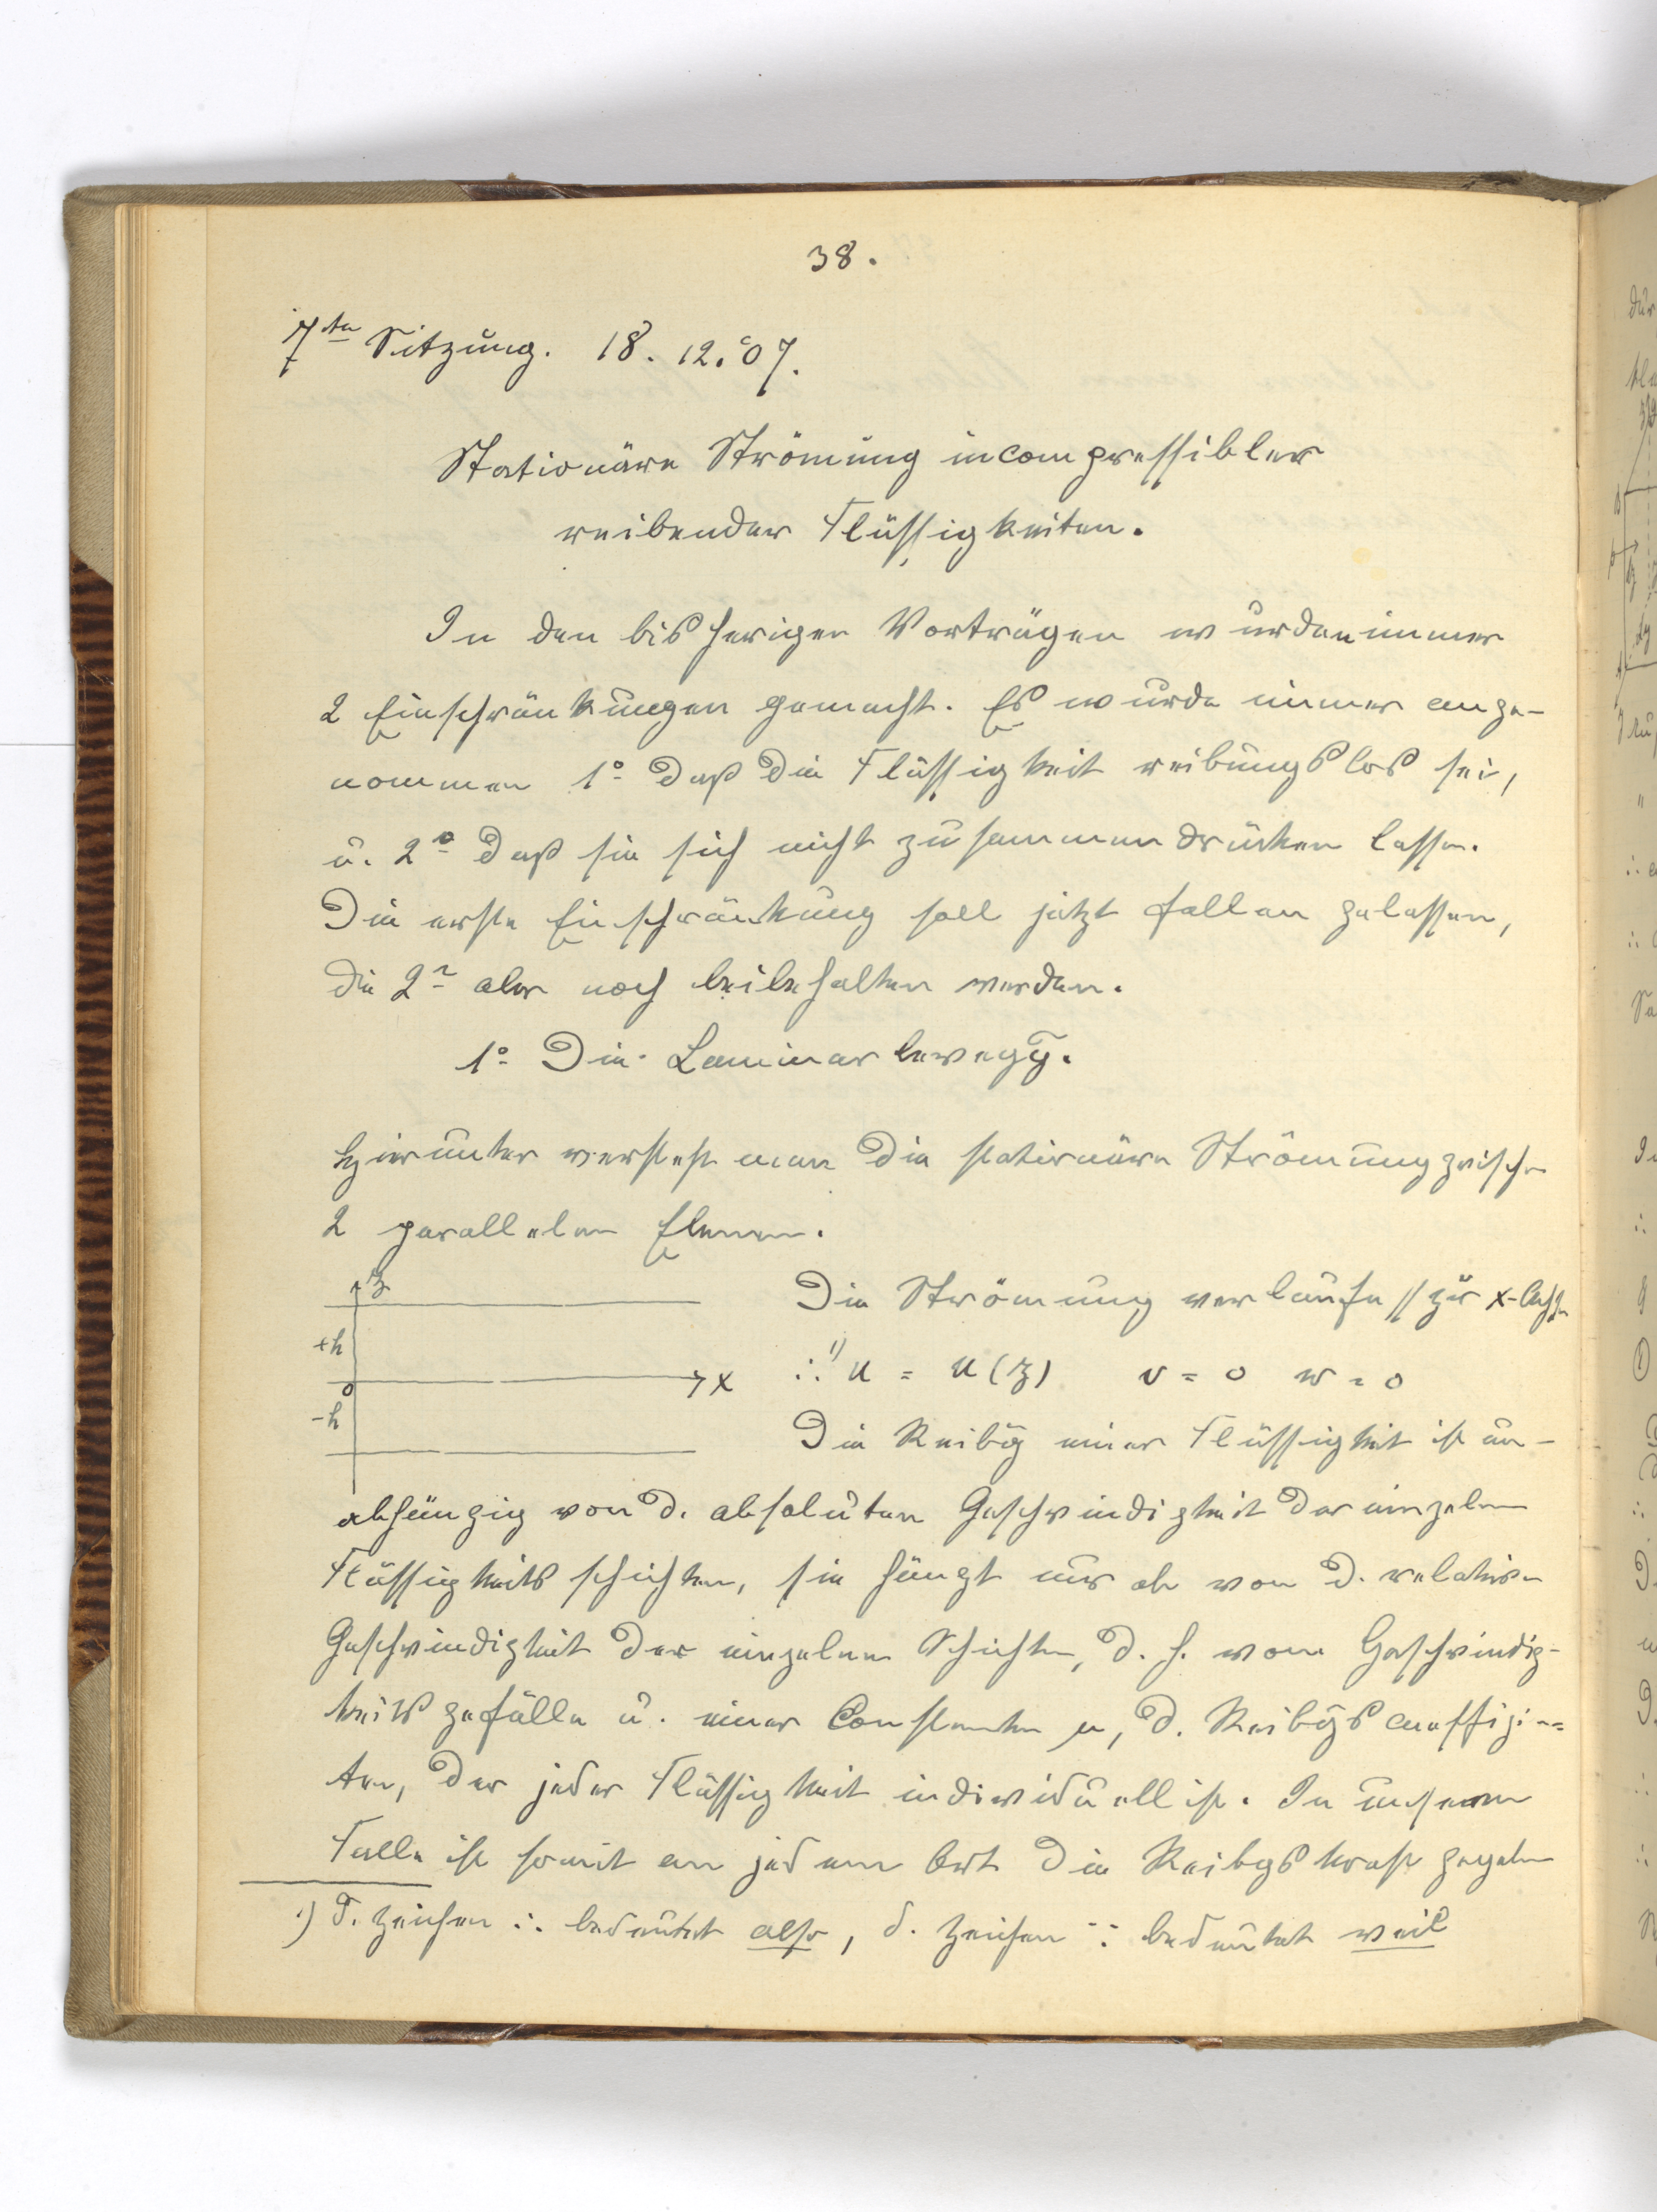 38.
7te Sitzung. 18. 12. 07.
Stationäre Strömung incompressibler
reibender Flüssigkeiten.
In den bisherigen Vorträgen wurden immer
2 Einschränkungen gemacht. Es wurde immer ange-
nommen 1º daß die Flüssigkeit reibungslos sei,
u. 2º daß sie sich nicht zusammendrücken lasse.
Die erste Einschränkung soll jetzt fallen gelassen,
die 2te aber noch beibehalten werden.
1º Die Laminarbewegg.
Hierunter versteht man die stationäre Strömung zwischen
2 parallelen Ebenen.
z
+h
0
x
-h
Die Strömung verlaufe // zur x-Achse
∴ 1) u = u(z) v = 0 w = 0
Die Reibg einer Flüssigkeit ist un-
abhängig von d. absoluten Geschwindigkeit der einzelnen
Flüssigkeitsschichten, sie hängt nur ab von d. relativen
Geschwindigkeit der einzelnen Schichten, d. h. vom Geschwindig-
keitsgefälle u. einer Constanten μ, d. Reibgscoeffizien-
ten, der jeder Flüssigkeit individuell ist. In unserem
Falle ist somit an jedem Ort die Reibgskraft gegeben
1) d. Zeichen ∴ bedeutet also, d. Zeichen ∵ bedeutet weil